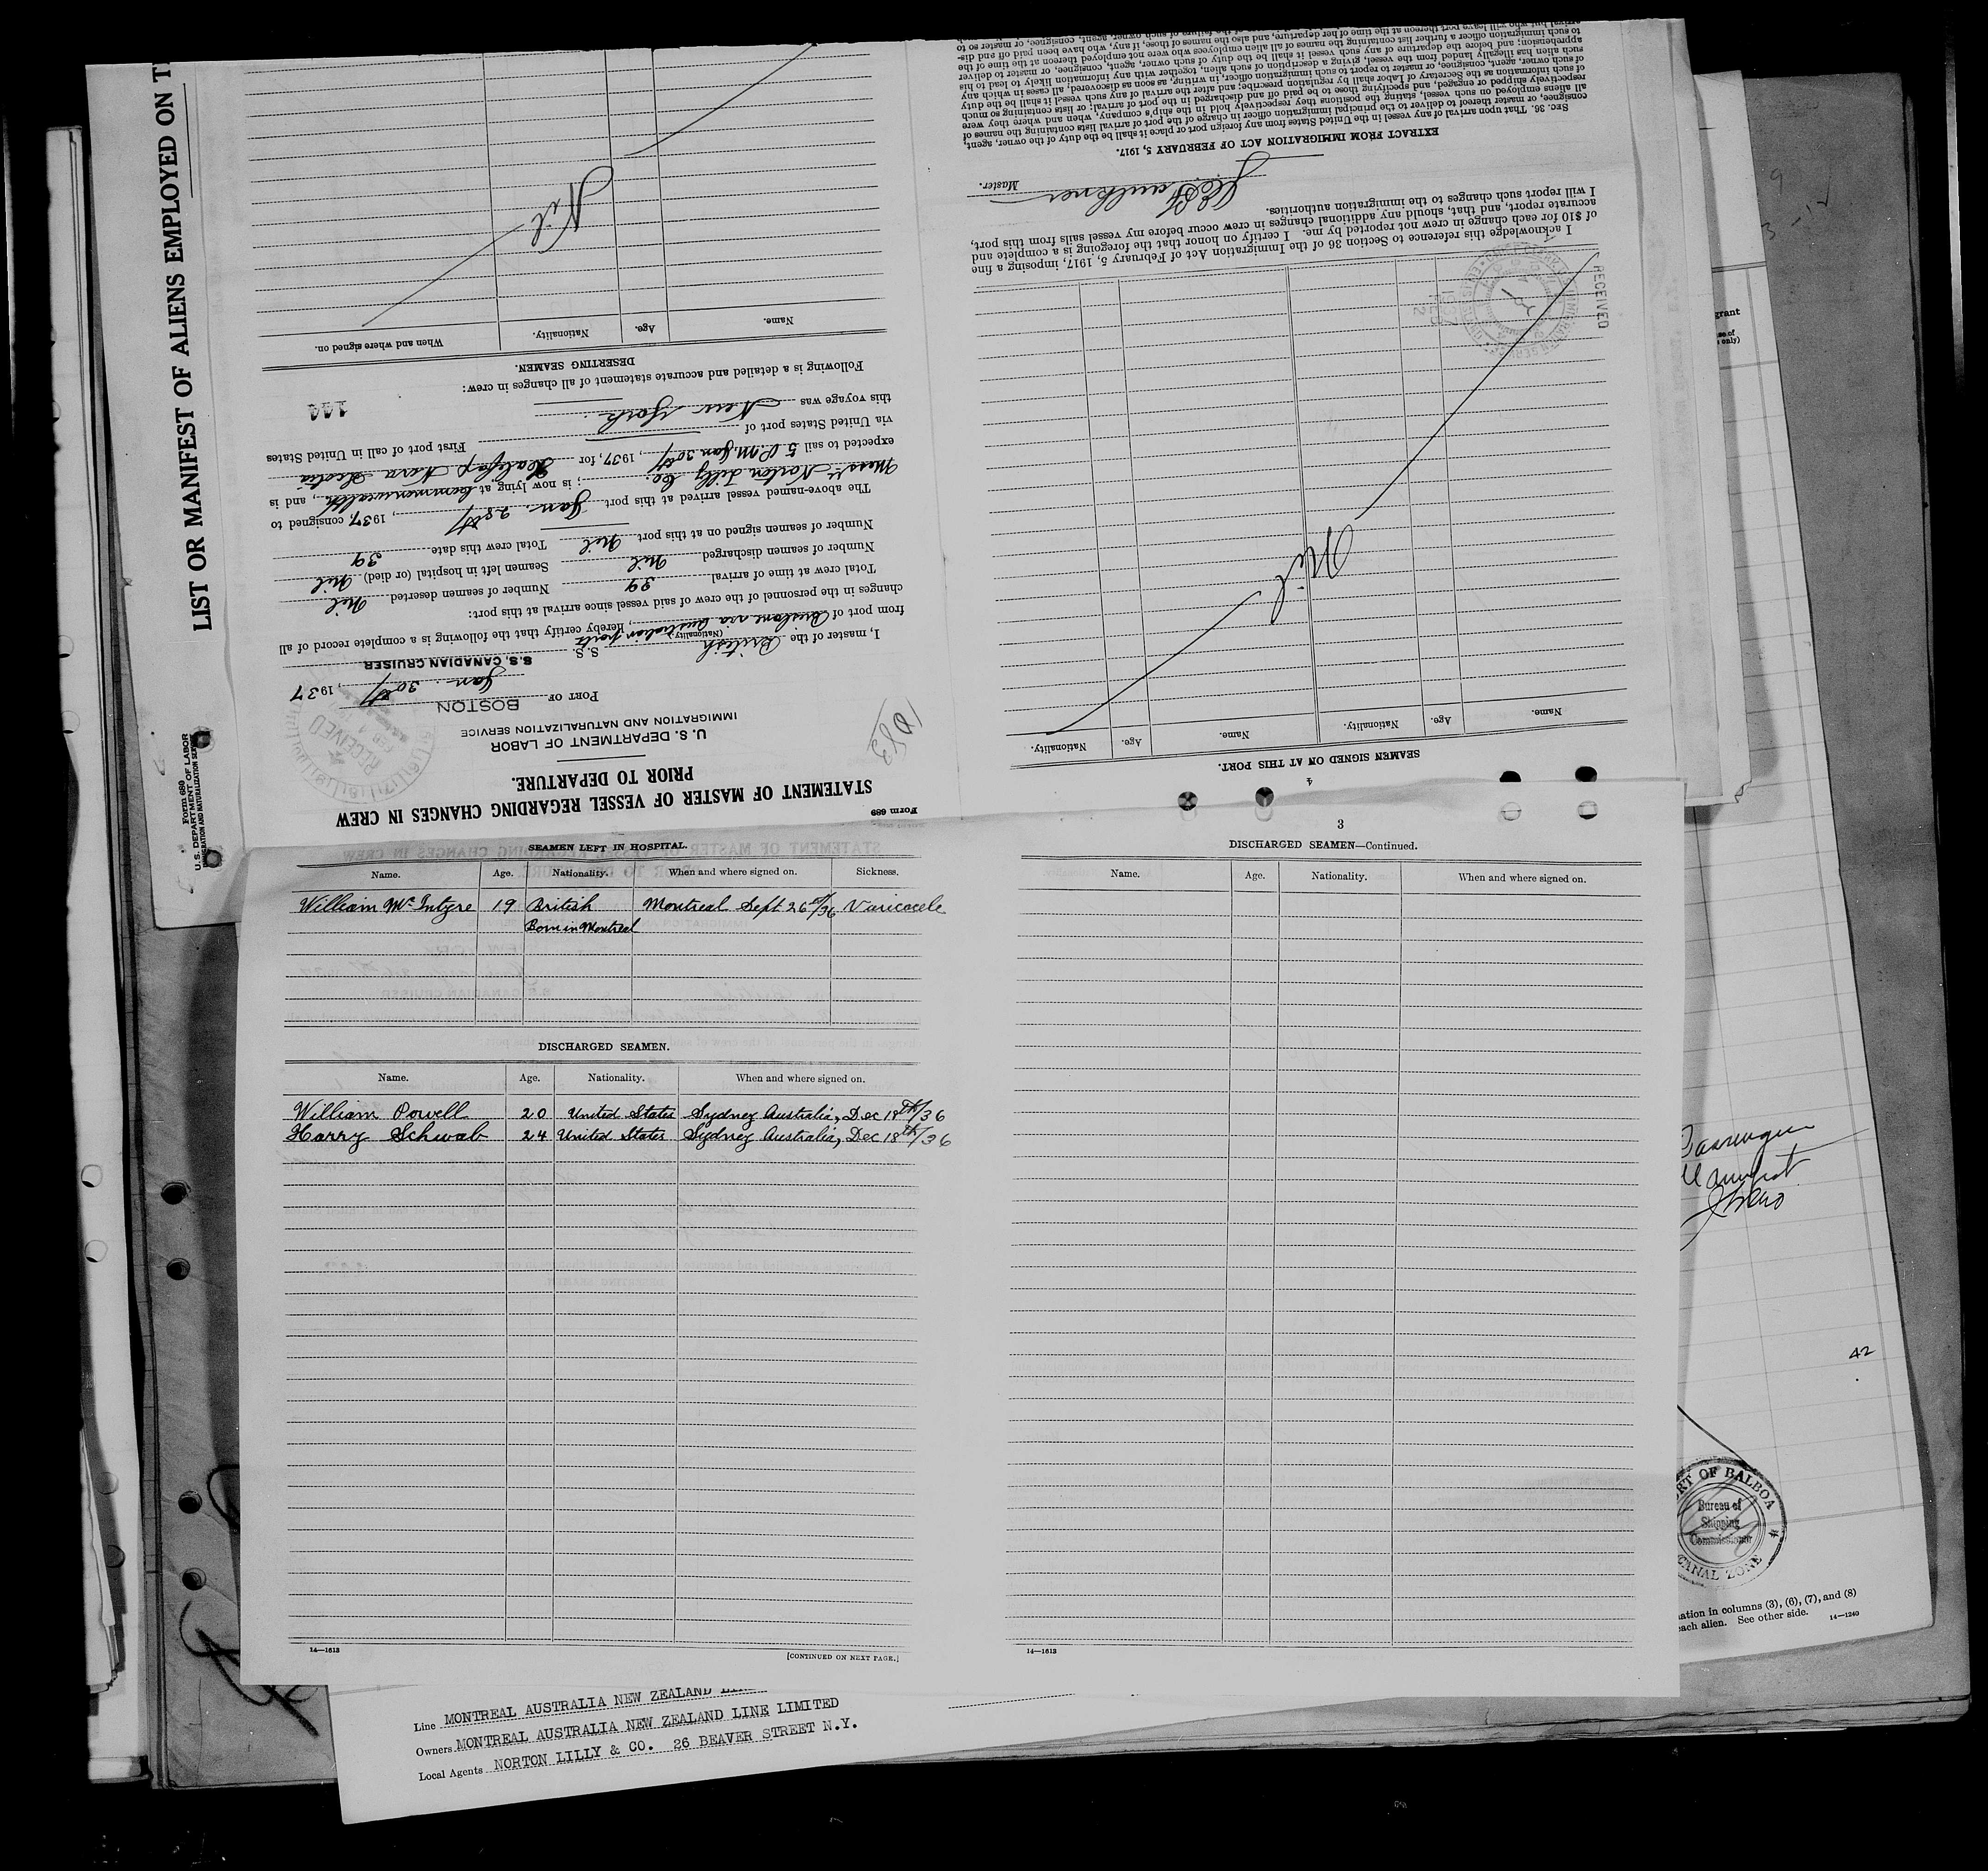 LIST OR MANIFEST OF ALIENS EMPLOYED ON
Form 686
U. S. DEPARTMENT OF LABOR
IMMIGRATION AND NATURALIZATION SERVICE
Form 689
STATEMENT OF MASTER OF VESSEL REGARDING CHANGES IN CREW
PRIOR TO DEPARTURE.
U. S. DEPARTMENT OF LABOR
IMMIGRATION AND NATURALIZATION SERVICE
PORT OF BOSTON
Jan. 30th, 1937
RECEIVED
FEB 1
I, master of the British S.S. S.S. CANADIAN CRUISER
(Nationality)
from port of Brisbane via Australian ports, hereby certify that the following is a complete record of all
changes in the personnel of the crew of said vessel since arrival at this port:
Total crew at time of arrival 39 Number of seamen deserted Nil
Number of seamen discharged Nil Seamen left in hospital (or died) Nil
Number of seamen signed on at this port Nil Total crew this date 39
The above-named vessel arrived at this port Jan. 28th, 1937, consigned to
Messrs Norton Lilly Co.; is now lying at Commonwealth, and is
expected to sail 5 P.M Jan 30th, 1937, for Halifax Nova Scotia
via United States port of First port of call in United States
this voyage was New York.
144
Following is a detailed and accurate statement of all changes in crew:
DESERTING SEAMEN.
Name. Age. Nationality. When and where signed on.
Nil
4
SEAMEN SIGNED ON AT THIS PORT.
Name. Age. Nationality. Name. Age. Nationality.
Nil
RECEIVED
I acknowledge this reference to Section 36 of the Immigration Act of February 5, 1917, imposing a fine
of $10 for each change in crew not reported by me. I certify on honor that the foregoing is a complete and
accurate report, and that, should any additional changes in crew occur before my vessel sails from this port,
I will report such changes to the immigration authorities.
Faulkner Master.
EXTRACT FROM IMMIGRATION ACT OF FEBRUARY 5, 1917.
SEC. 36. That upon arrival of any vessel in the United States from any foreign port or place it shall be the duty of the owner, agent,
consignee, or master thereof to deliver to the principal immigration officer in charge of the port of arrival lists containing the names of
all aliens employed on such vessel, stating the positions they respectively hold in the ship's company, when and where they were
respectively shipped or engaged, and specifying those to be paid off and discharged in the port of arrival; or lists containing so much
of such information as the Secretary of Labor shall by regulation prescribe; and after the arrival of any such vessel it shall be the duty
of such owner, agent, consignee, or master to report to such immigration officer, in writing, as soon as discovered, all cases in which any
such alien has illegally landed from the vessel, giving a description of such alien, together with any information likely to lead to his
apprehension; and before the departure of any such vessel it shall be the duty of such owner, agent, consignee, or master to deliver
to such immigration officer a further list containing the names of all alien employees who were not employed thereon at the time of the
arrival but who will leave port thereon at the time of her departure, and also the names of those, if any, who have been paid off and dis-
SEAMEN LEFT IN HOSPITAL.
Name. Age. Nationality. When and where signed on. Sickness.
William McIntyre 19 British Montreal Sept 26th/36 Varicocele
Born in Montreal
DISCHARGED SEAMEN.
Name. Age. Nationality. When and where signed on.
William Powell 20 United States Sydney Australia, Dec 18th/36
Harry Schwab 24 United States Sydney Australia, Dec 18th/36
14—1613
[CONTINUED ON NEXT PAGE.]
3
DISCHARGED SEAMEN—Continued.
Name. Age. Nationality. When and where signed on.
14—1613
Line MONTREAL AUSTRALIA NEW ZEALAND
Owners MONTREAL AUSTRALIA NEW ZEALAND LINE LIMITED
Local Agents NORTON LILLY & CO. 26 BEAVER STREET N.Y.
Passenger
42
OF BALBOA
Bureau of
Shipping
Commissioner
CANAL ZONE
in columns (3), (6), (7), and (8)
each alien. See other side. 14—1240